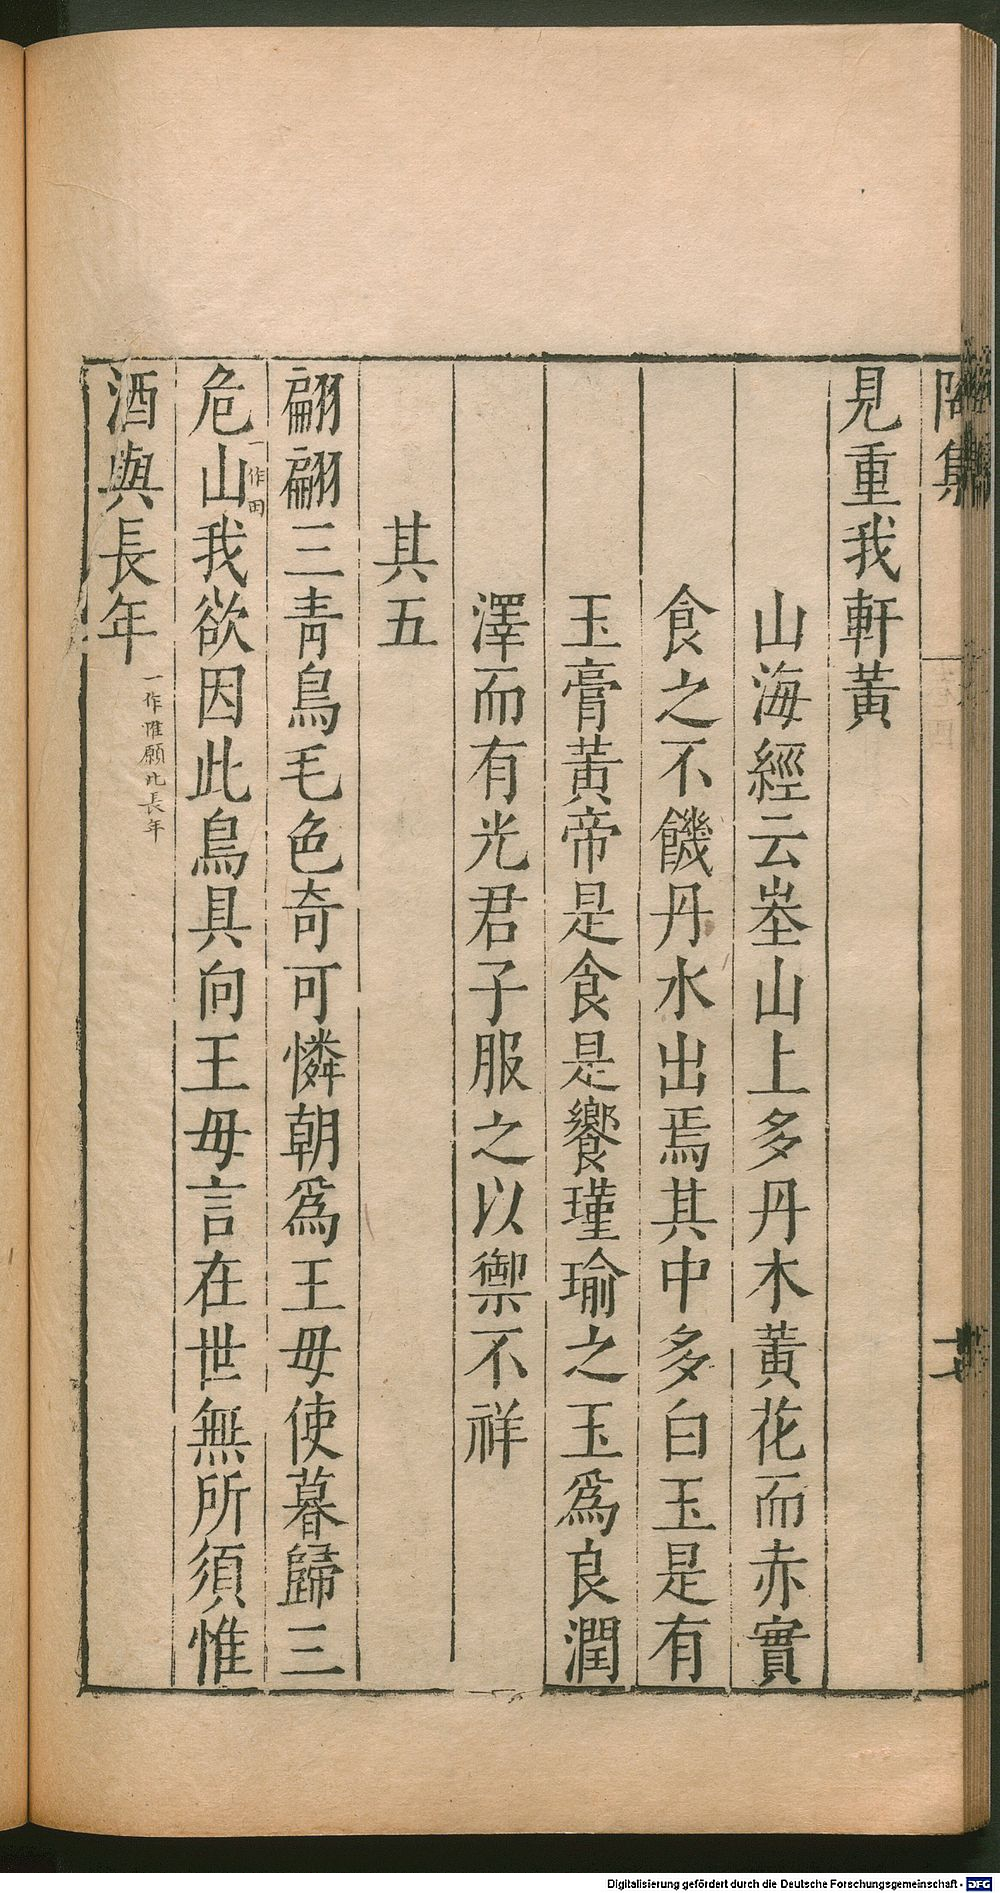 見重我軒黃
山海經云峚山上多丹木黃花而赤實
食之不饑丹水出焉其中多白玉是有
玉膏黃帝是食是饗瑾瑜之玉爲良潤
澤而有光君子服之以禦不祥
其五
翩翩三青鳥毛色奇可憐朝爲王母使暮歸三
危山一作田我欲因此鳥具向王母言在世無所須惟
酒與長年一作惟願此長年
Digitalisierung gefördert durch die Deutsche Forschungsgemeinschaft - DFG